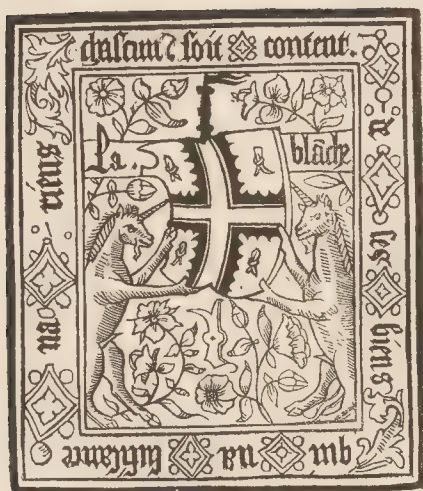 chascun soit content.
de ses biens
qui na suffisance
na riens
La . blāche